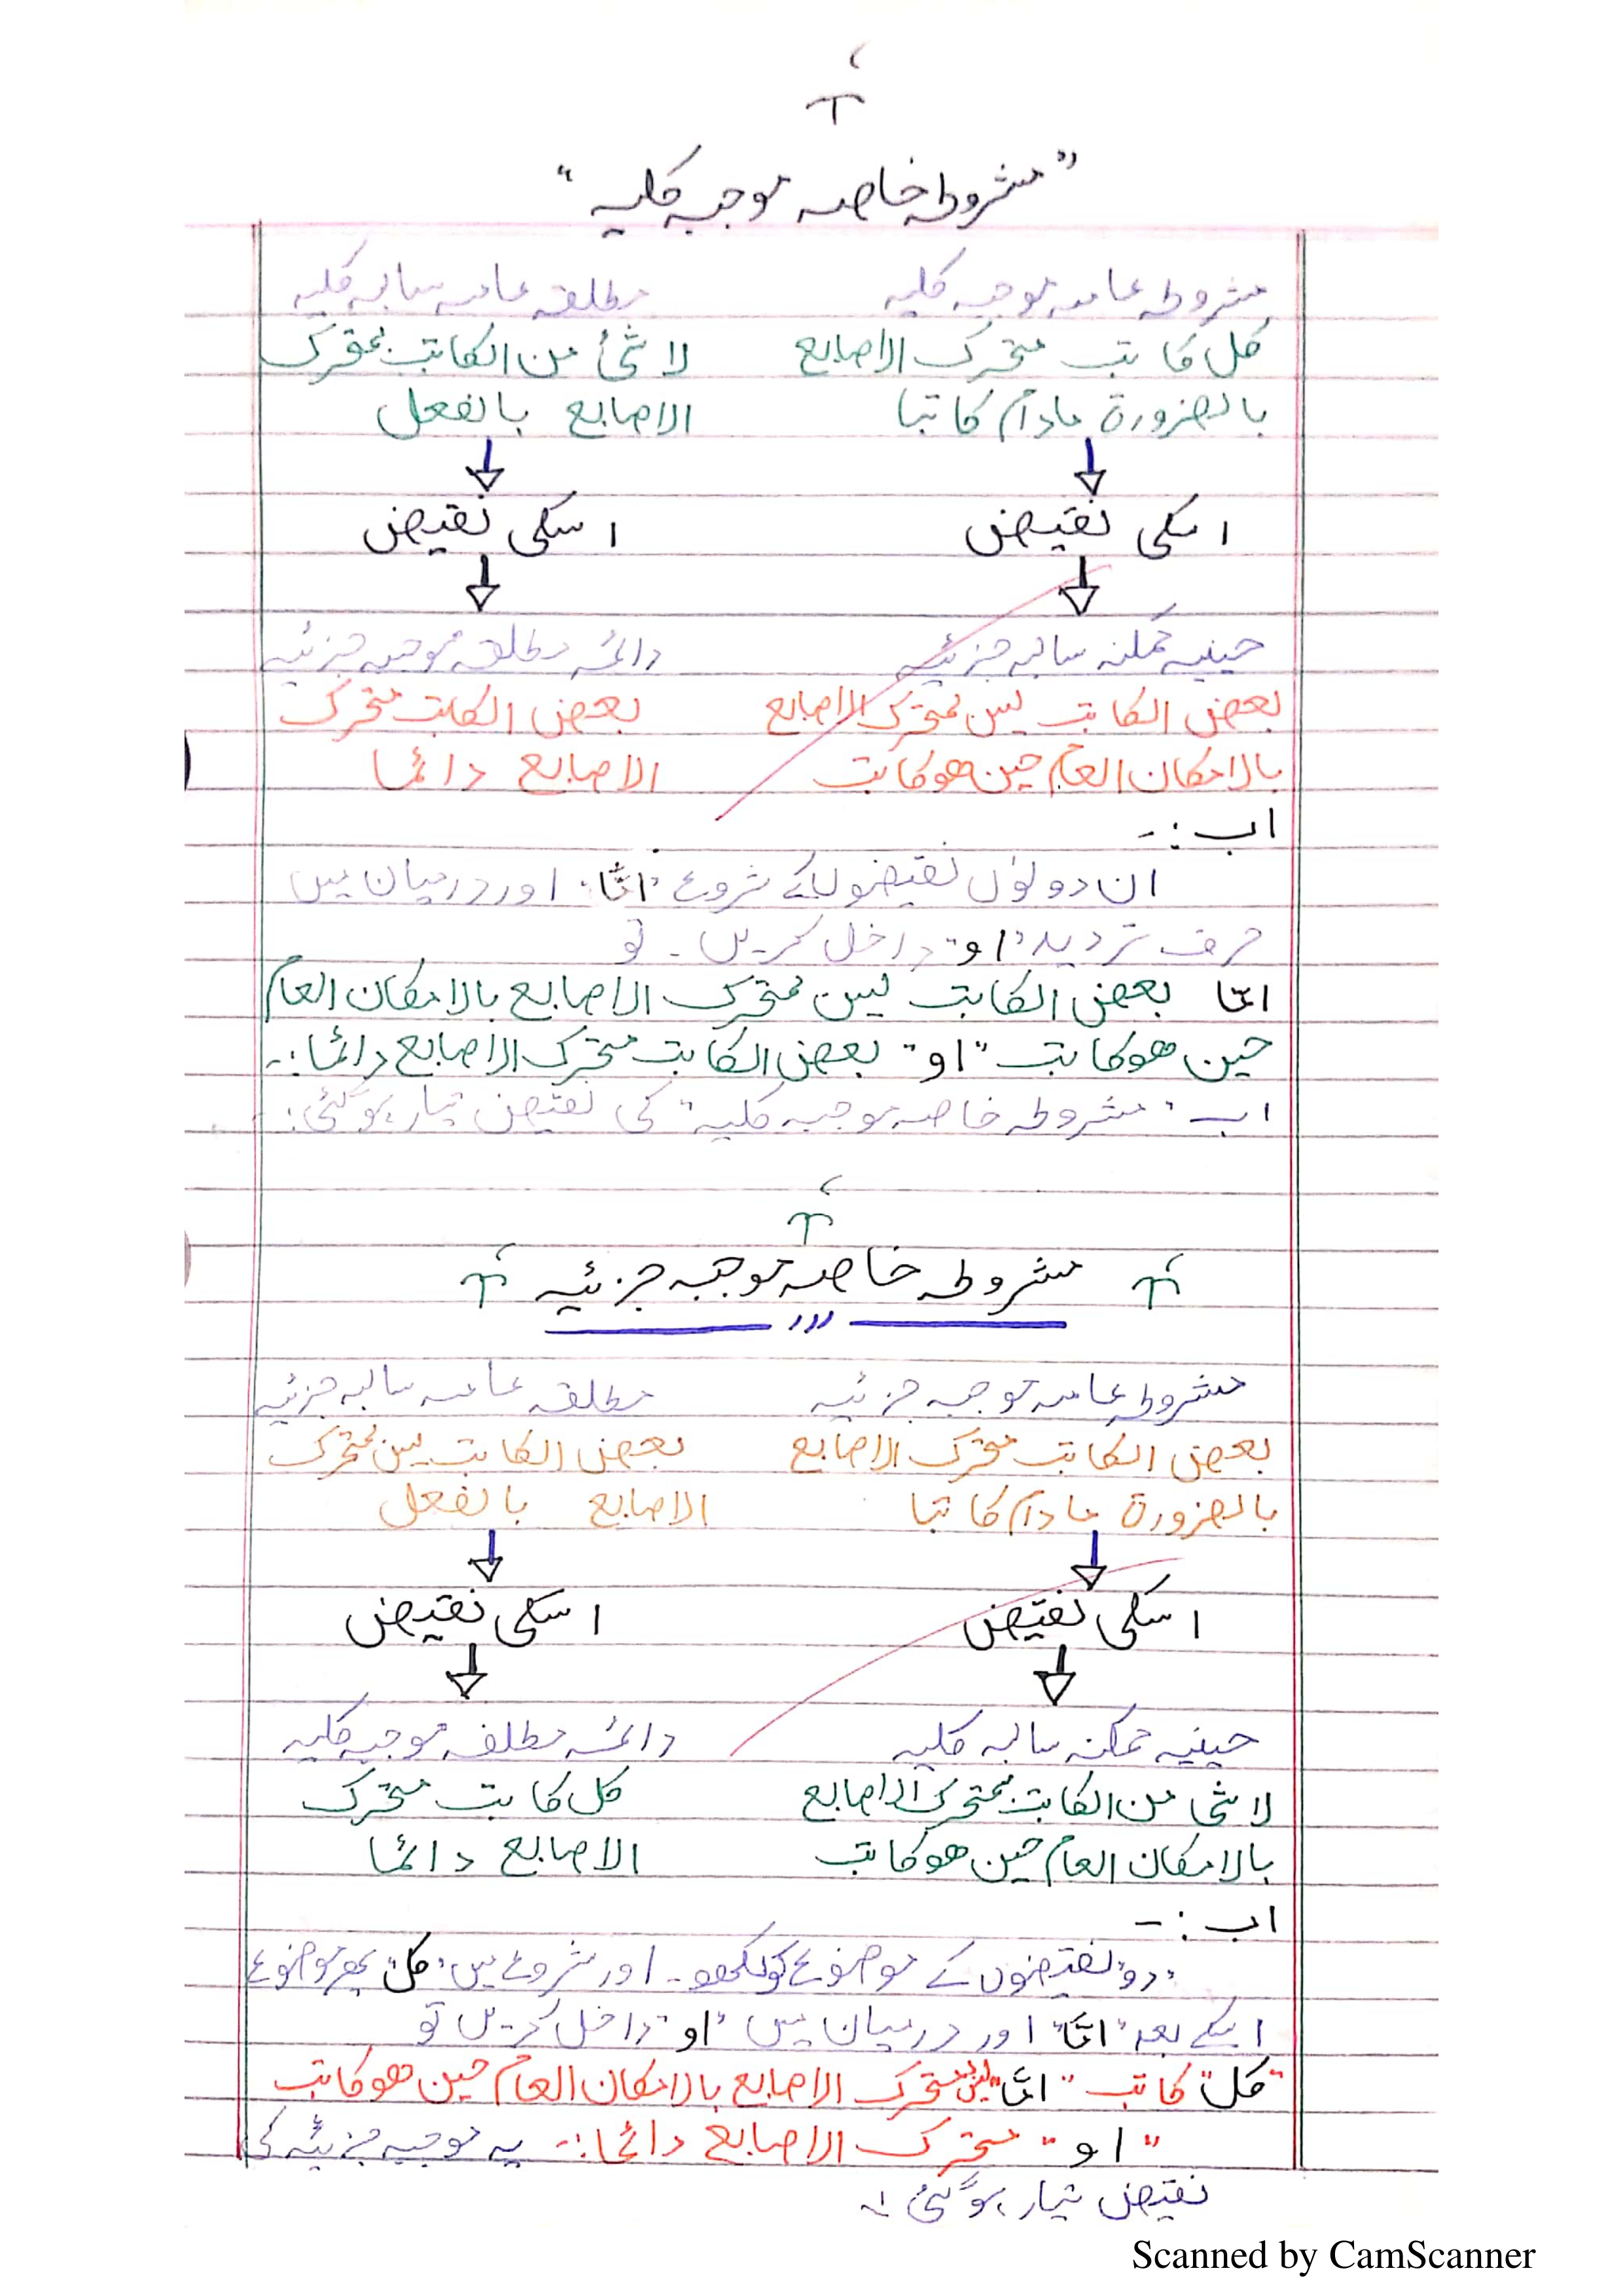 "مشروطہ خاصہ موجبہ کلیہ"
مشروطہ عامہ موجبہ کلیہ مطلقہ عامہ سالبہ کلیہ
کل کاتب متحرک الاصابع لا شئ من الکاتب بمتحرک
بالضرورۃ مادام کاتبا الاصابع بالفعل
اسکی نقیض اسکی نقیض
حینیہ ممکنہ سالبہ جزئیہ دائمہ مطلقہ موجبہ جزئیہ
بعض الکاتب لیس بمتحرک الاصابع بعض الکاتب متحرک
بالامکان العام حین ھو کاتب الاصابع دائما
اب :-
ان دونوں نقیضوں کے شروع "امّا" اور درمیان میں
حرف تردید "او" داخل کریں - تو
امّا بعض الکاتب لیس بمتحرک الاصابع بالامکان العام
حین ھو کاتب "او" بعض الکاتب متحرک الاصابع دائما :-
اب "مشروطہ خاصہ موجبہ کلیہ" کی نقیض تیار ہوگئی :
مشروطہ خاصہ موجبہ جزئیہ
مشروطہ عامہ موجبہ جزئیہ مطلقہ عامہ سالبہ جزئیہ
بعض الکاتب متحرک الاصابع بعض الکاتب لیس بمتحرک
بالضرورۃ مادام کاتبا الاصابع بالفعل
اسکی نقیض اسکی نقیض
حینیہ ممکنہ سالبہ کلیہ دائمہ مطلقہ موجبہ کلیہ
لا شئ من الکاتب بمتحرک الاصابع کل کاتب متحرک
بالامکان العام حین ھو کاتب الاصابع دائما
اب :-
"دو" نقیضوں کے موضوع کو لکھو - اور شروع میں "کل" پھر موضوع
اسکے بعد "امّا" اور درمیان میں "او" داخل کریں تو
"کل" کاتب "امّا" لیس بمتحرک الاصابع بالامکان العام حین ھو کاتب
"او" متحرک الاصابع دائما :- یہ موجبہ جزئیہ کی
نقیض تیار ہوگئی :-
Scanned by CamScanner